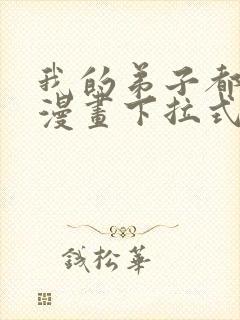 我的弟子都
漫畫下拉式
錢松華